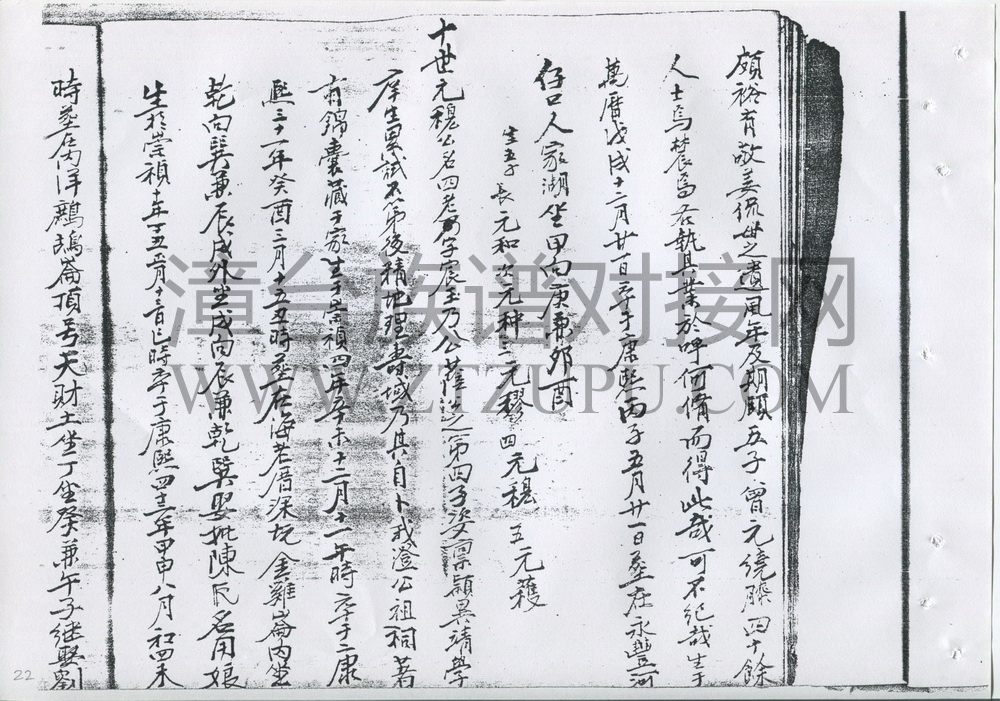 頗裕有敬姜侃母之遺風年及期頤五子曾元繞膝四十餘
人士焉農焉各執其業於呼何脩而得此哉可不紀哉生于
萬曆戊戌十二月廿一日卒于康熙丙子五月廿一日葬在永豐河
仔口人家湖坐甲向庚兼卯酉
生五子 長元和 次元种 三元穆 四元穏 五元穫
十世元穏公名四老字宸玉乃公之第四子姿禀穎異靖學
庠生累試不第後精地理壽域乃其自卜我澄公祖祠著
有錦囊藏于家生于崇禎四年辛未十二月十一午時卒于康
熙三十一年癸酉三月十五丑時葬在海老厝深坑金雞崙內坐
乾向巽兼辰戌外坐戌向辰兼乾巽娶妣陳氏名用娘
生於崇禎十年丁丑正月十三日巳時卒于康熙四十三年甲申八月初四未
時葬烏洋鷓鴣崙頂号天財土坐丁坐癸兼午子継娶劉
漳台族谱对接网
WWW.ZTZUPU.COM
22